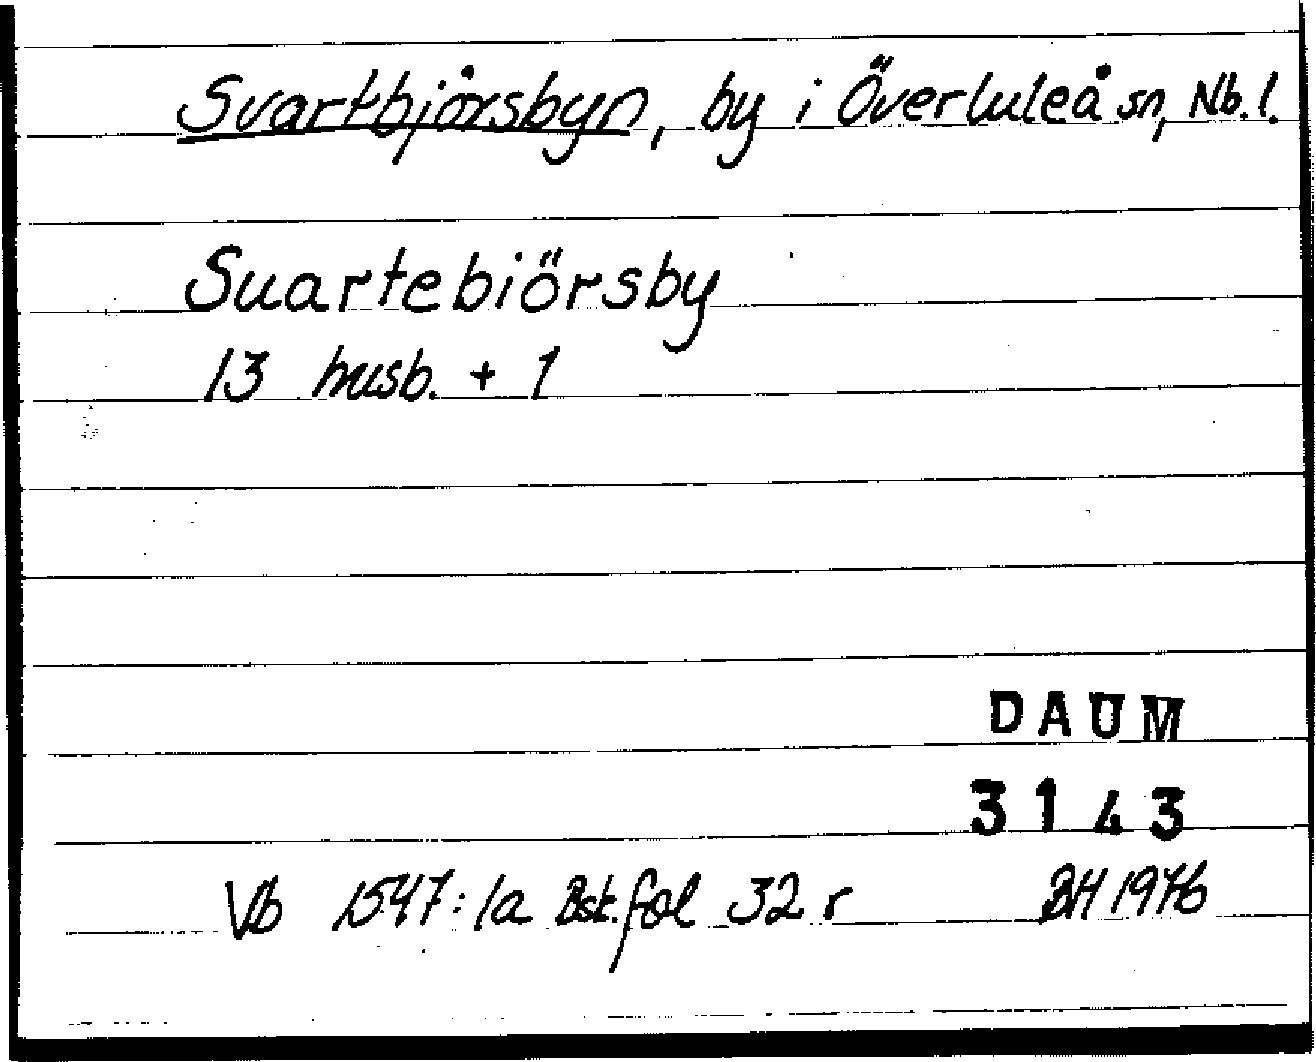 Svartbjörsbyn, by i Överluleå sn, Nb. l.
Suartebiörsby
13 husb. + 1
DAUM
3143
Vb 1547:1a Bsk. fol 32 r BH 1976